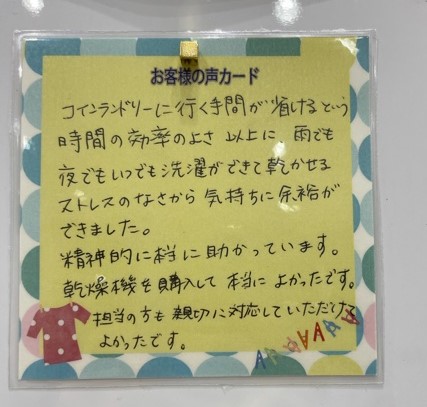 お客様の声カード
コインランドリーに行く手間が省けるという
時間の効率のよさ以上に、雨でも
夜でもいつでも洗濯ができて乾かせる
ストレスのなさから気持ちに余裕が
できました。
精神的に本当に助かっています。
乾燥機を購入して本当によかったです。
担当の方も親切に対応していただけて
よかったです。